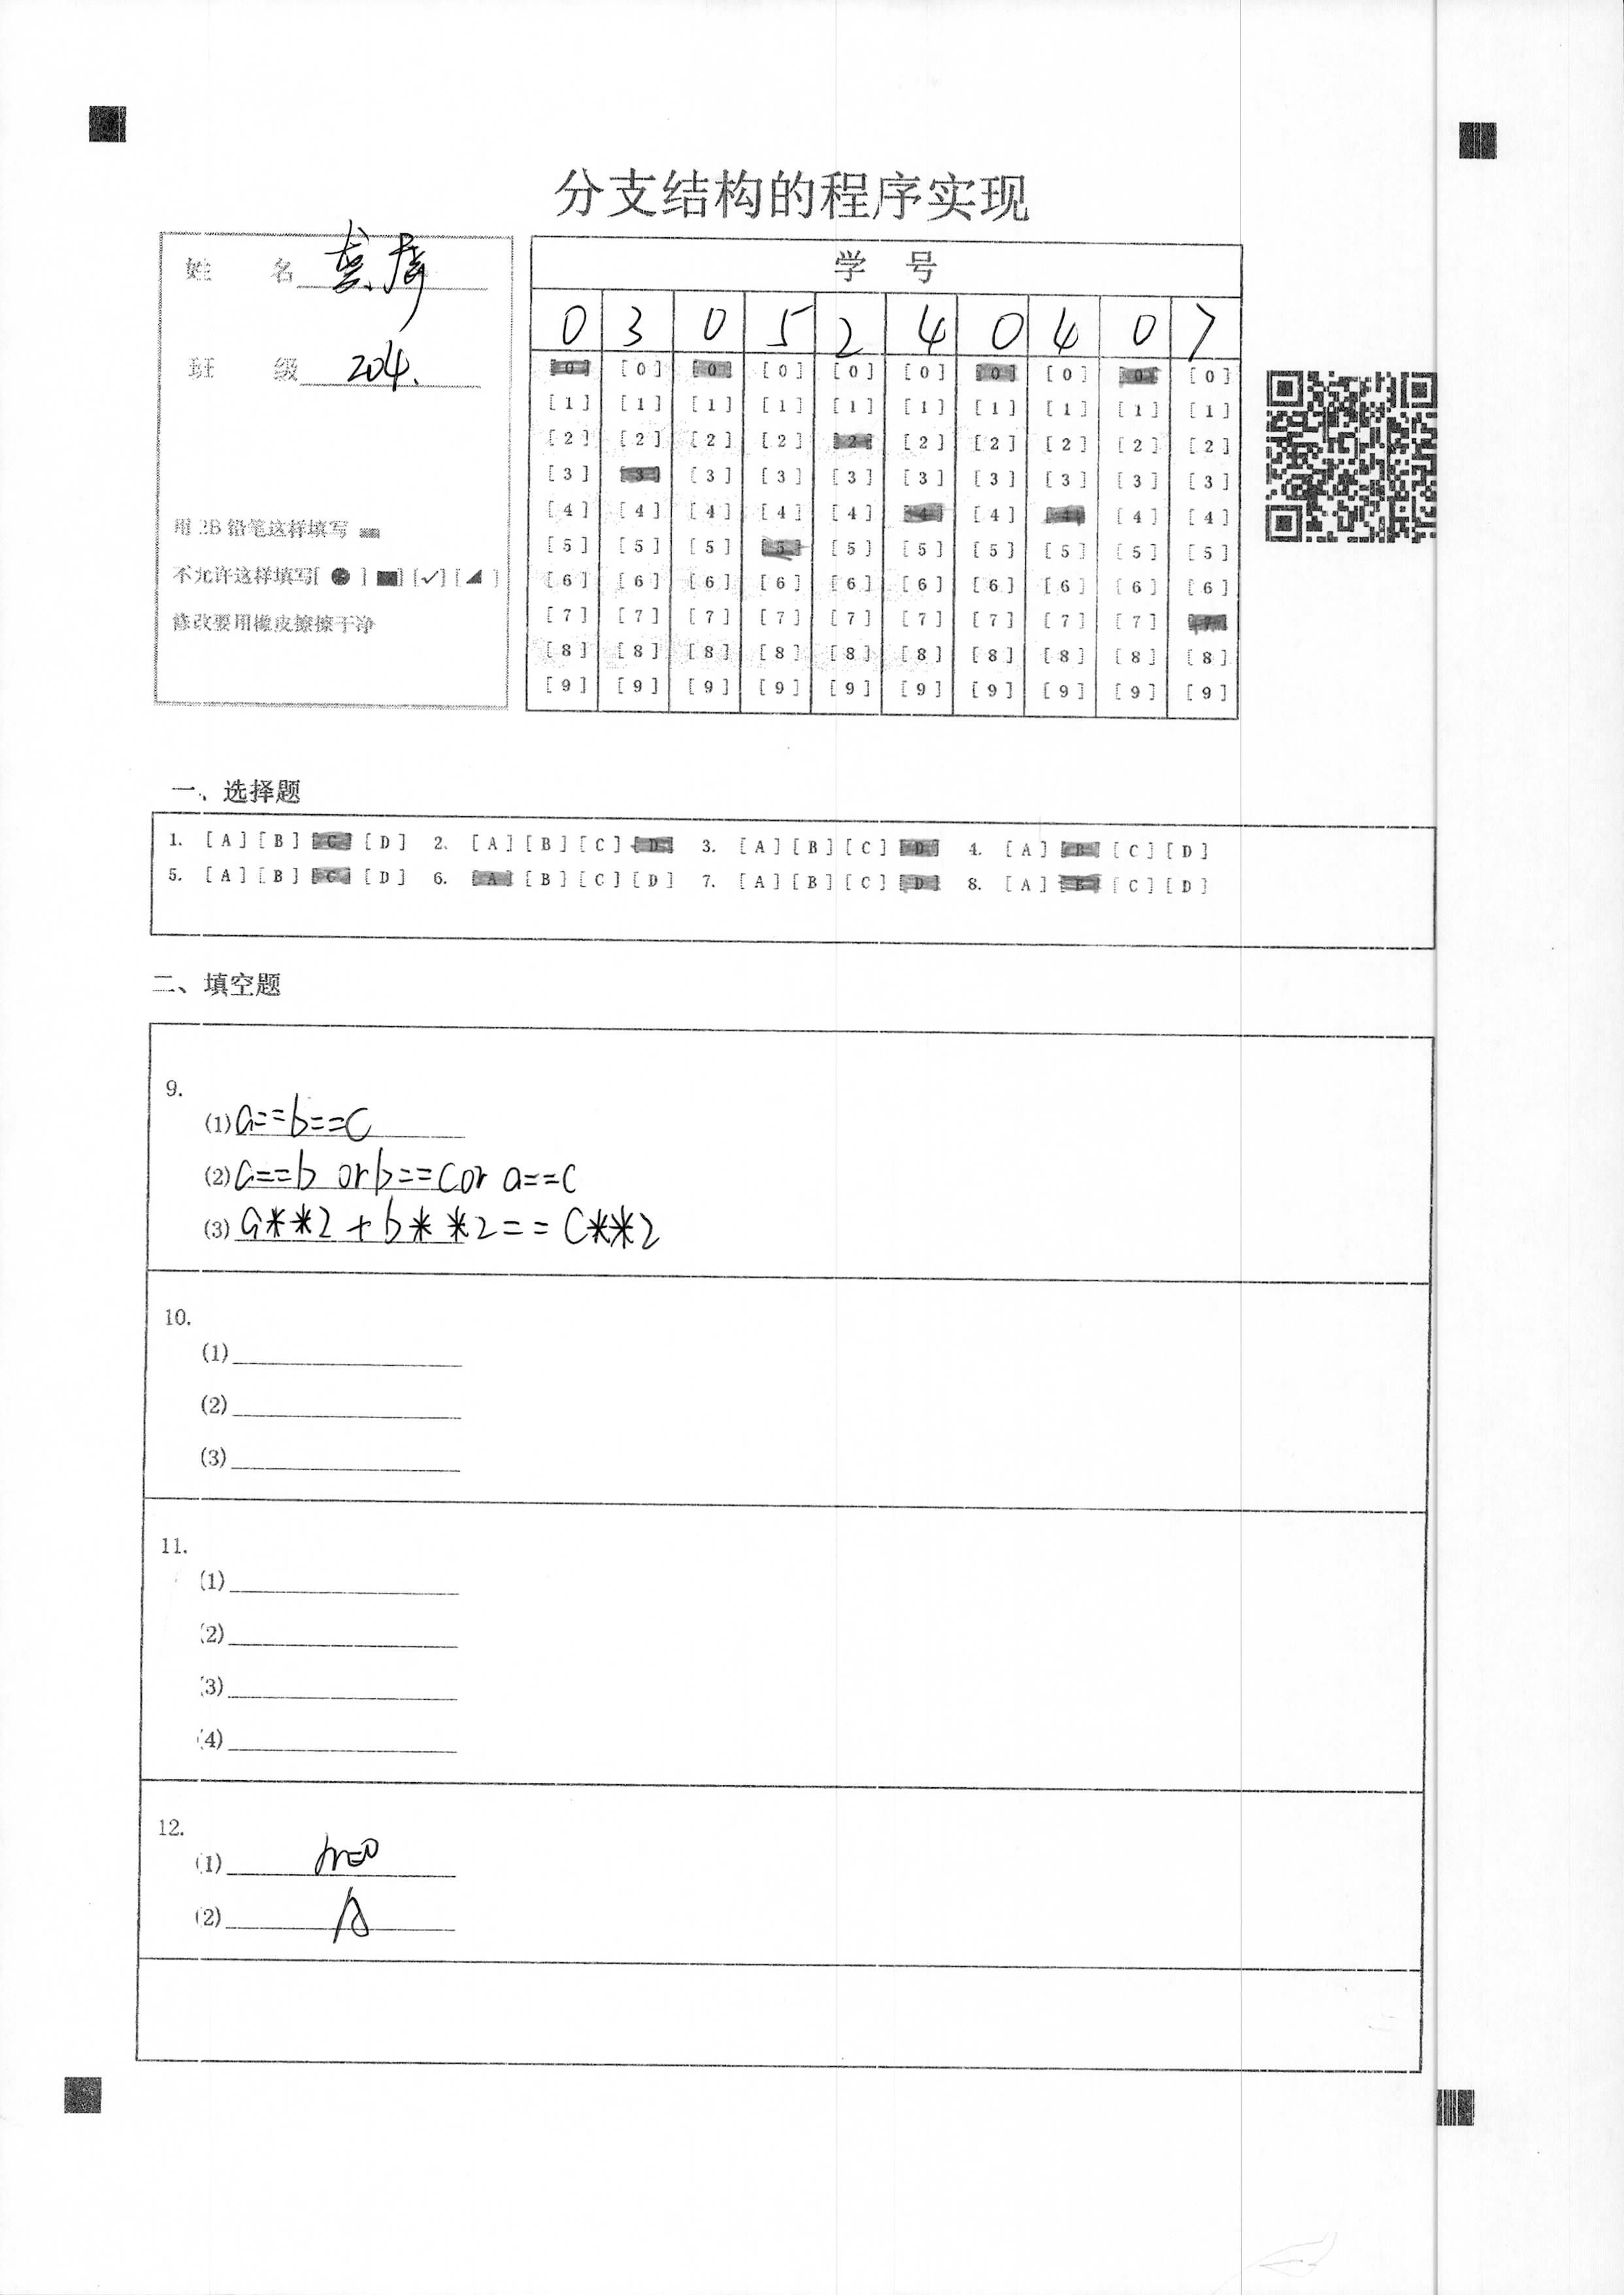 分支结构的程序实现
姓 名
班 级 204.
用2B铅笔这样填写
不允许这样填写[ ● ] [■] [✓] [◢ ]
修改要用橡皮擦擦干净
学 号
0 3 0 5 2 4 0 4 0 7
[0] [0] [0] [0] [0] [0] [0] [0] [0] [0]
[1] [1] [1] [1] [1] [1] [1] [1] [1] [1]
[2] [2] [2] [2] [2] [2] [2] [2] [2] [2]
[3] [3] [3] [3] [3] [3] [3] [3] [3] [3]
[4] [4] [4] [4] [4] [4] [4] [4] [4] [4]
[5] [5] [5] [5] [5] [5] [5] [5] [5] [5]
[6] [6] [6] [6] [6] [6] [6] [6] [6] [6]
[7] [7] [7] [7] [7] [7] [7] [7] [7] [7]
[8] [8] [8] [8] [8] [8] [8] [8] [8] [8]
[9] [9] [9] [9] [9] [9] [9] [9] [9] [9]
一、选择题
1. [A] [B] [C] [D] 2. [A] [B] [C] [D] 3. [A] [B] [C] [D] 4. [A] [B] [C] [D]
5. [A] [B] [C] [D] 6. [A] [B] [C] [D] 7. [A] [B] [C] [D] 8. [A] [B] [C] [D]
二、填空题
9.
(1) a==b==c
(2) a==b or b==c or a==c
(3) a**2+b**2==c**2
10.
(1)
(2)
(3)
11.
(1)
(2)
(3)
(4)
12.
(1)
(2)